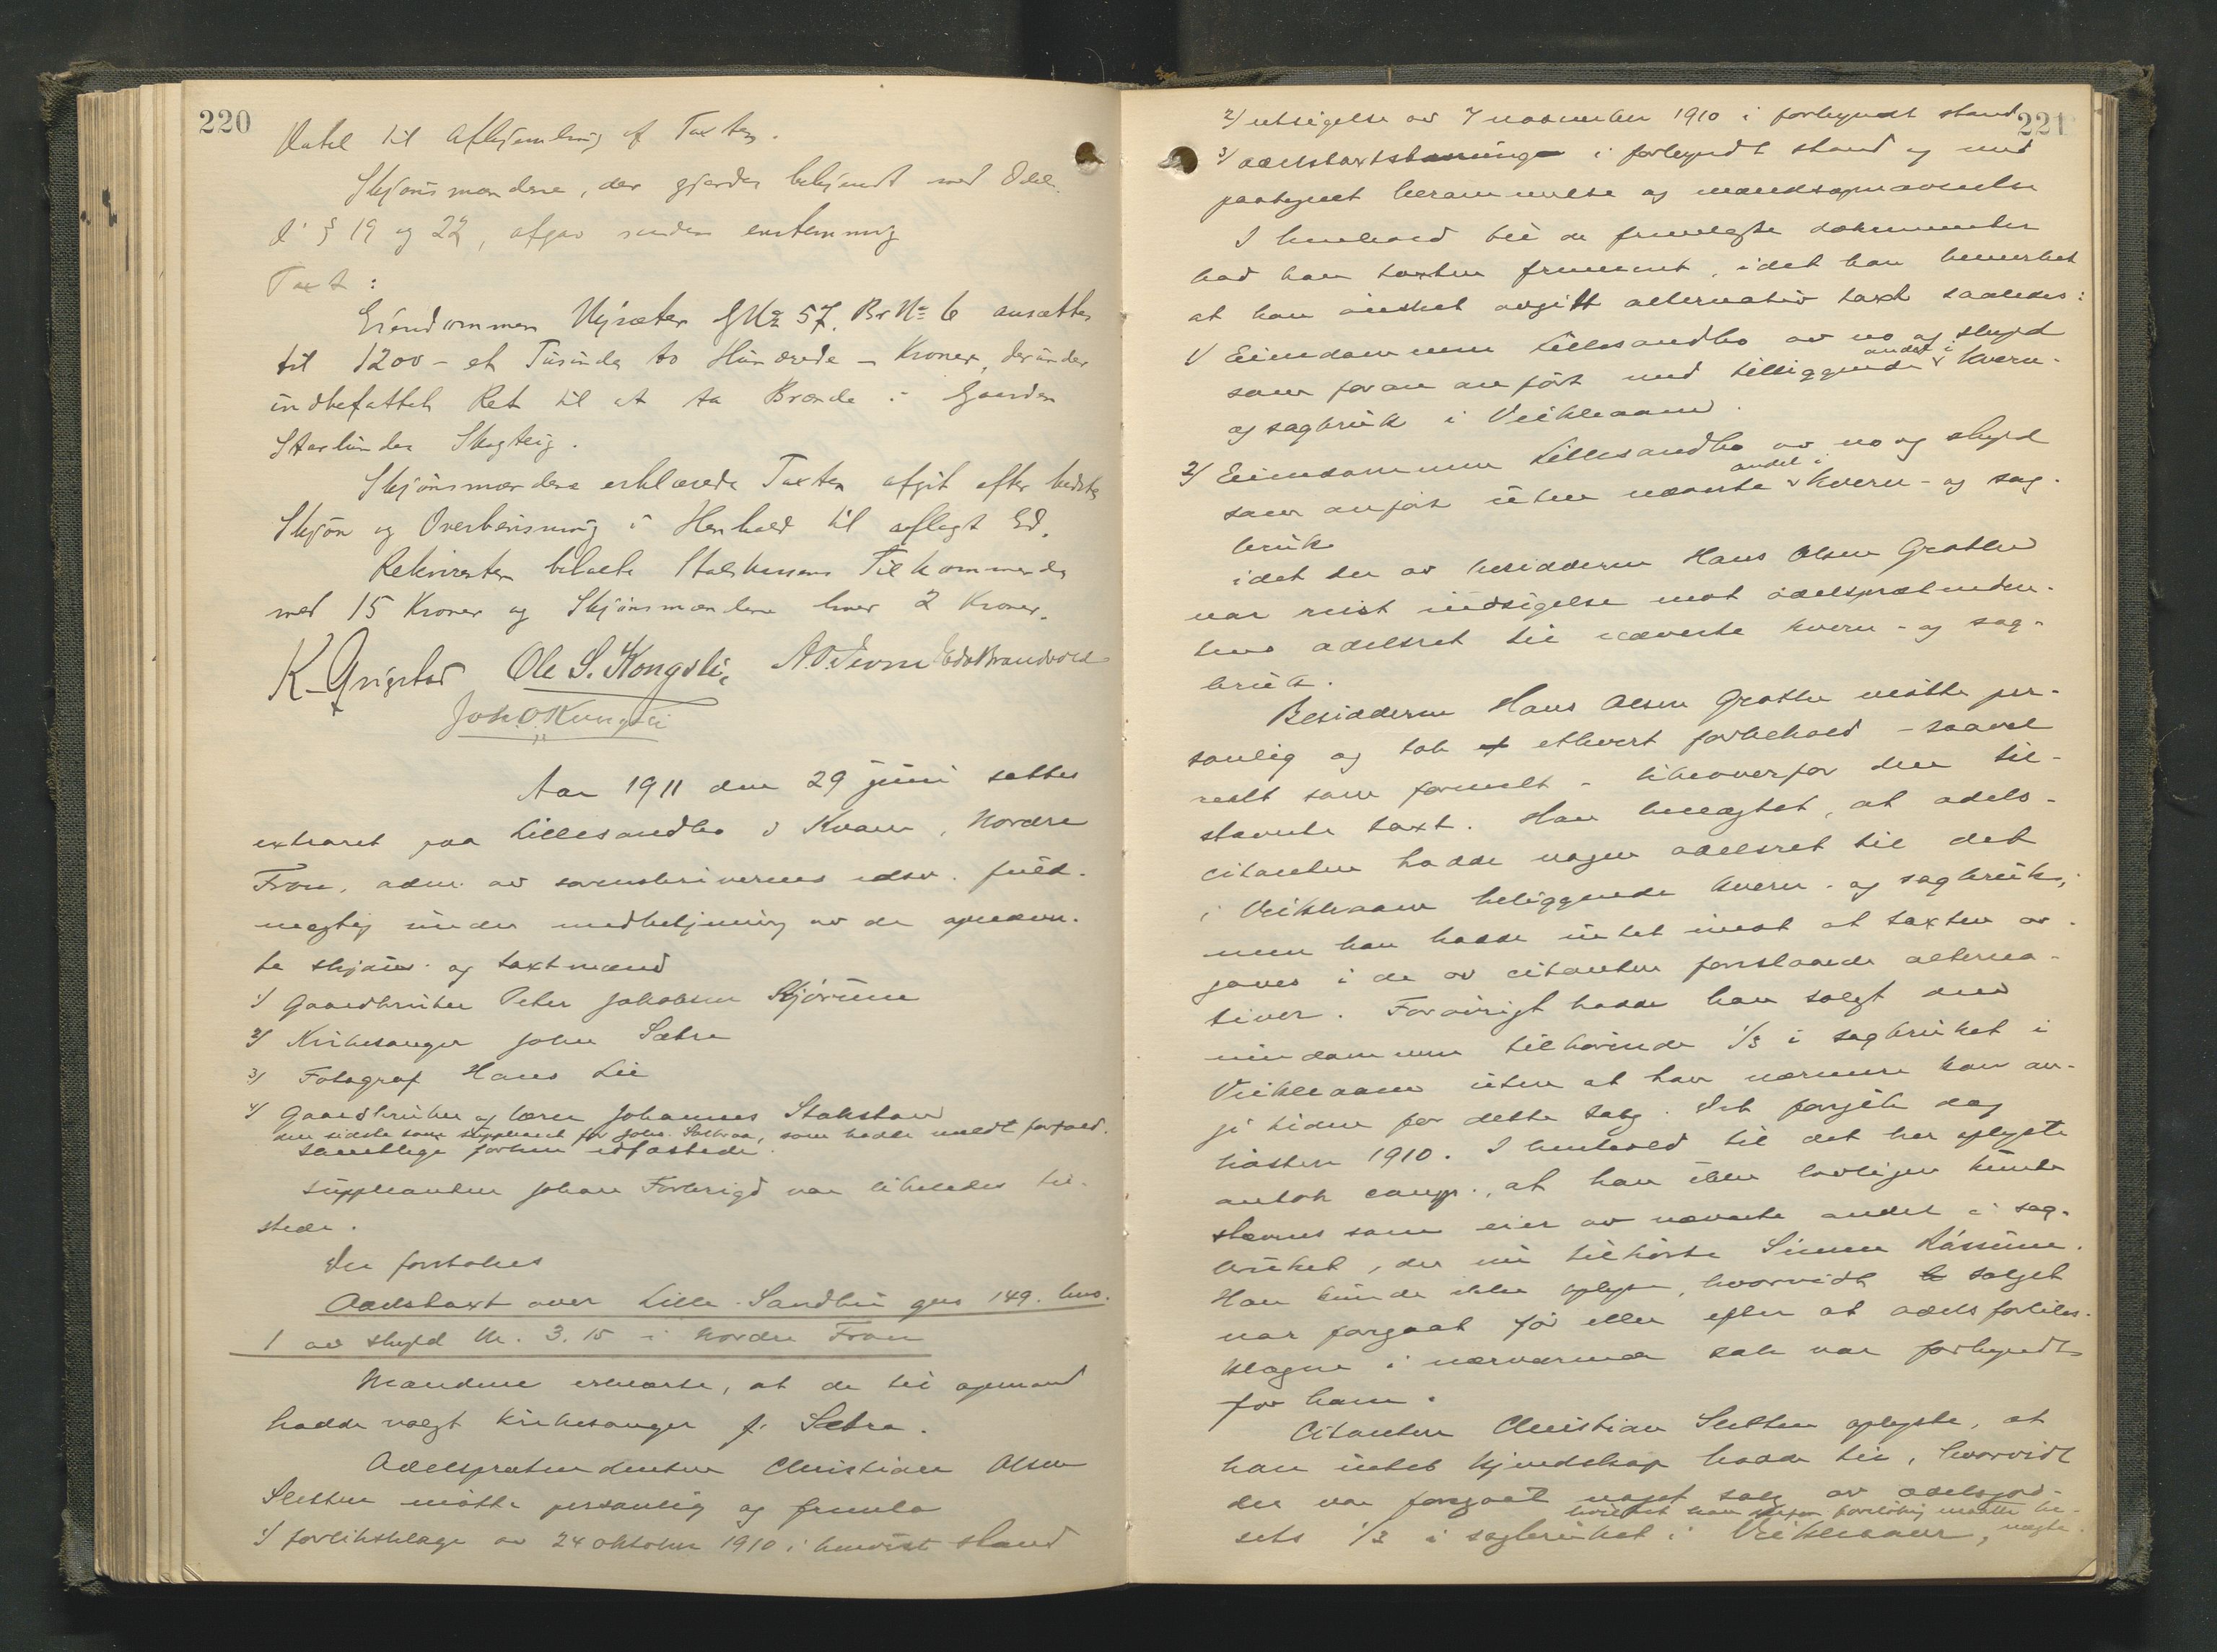 220
Vatel til Afhjemling af Taxten.
Skjønsmændene, der gjordes bekjendt med Odels
l. § 19 og 22, afgav saadan enstemmig
Taxt:
Eiendommen Nysæter GNo 57. Br No 6 ansættes
til 1200 - et Tusinde to Hundrede - Kroner, derunder
indbefattet Ret til at ta Brænde i Gaarden
Skogteig.
Skjønsmændene erklærede Taxten afgit efter bedste
Skjøn og Overbevisning i Henhold til aflagt Ed.
Rekvirenten betalte Statskassens Tilkommende
med 15 Kroner og Skjønsmændene hver 2 Kroner.
K. Grigstad Ole S. Kongsli, Edv Brandvold
Joh. O. Kongsli
Aar 1911 den 29 juni sattes
extraret paa Lillesandbo i Kvam, Nordre
Fron, adm. av sorenskriverens edsv. fuld-
mægtig under medbetjening av de opnævn-
te skjøns- og taxtmænd
1/ Gaardbruker Peter Jakobsen Kjørum
2/ Kirkesanger John Sætre
3/ Fotograf Hans Lie
4/ Gaardbruker og lærer Johannes Stakston
den sidste som suppleant for Johs. som hadde meldt forfald.
samtlige forhen edfæstede.
Suppleanten Johan Forbrigd var likeledes til-
stede.
Der foretokes
Odelstaxt over Lille-Sandbu gno 149. bno.
1 av skyld M. 3.15 i Nordre Fron
Mændene erklærte, at de til opmand
hadde valgt kirkesanger J. Sætre.
Odelsprætendenten Christian Olsen
Sletten møtte personlig og fremla
1/ forliksklage av 24 oktober 1910 i henvist stand
221
2/ utsigelse av 7 november 1910 i forkyndt stand
3/ odelstaxtstævning i forkyndt stand og med
paategnet berammelse og mandsopnævnelse
I henhold til de fremlagte dokumenter
bad han taxten fremmet, idet han bemerket
at han ønsket avgitt alternativ taxt saaledes:
1/ Eiendommen Lillesandbo av no og skyld
som foran anført med tilliggende andel i kvern-
og sagbruk i Veikleaaen.
2/ Eiendommen Lillesandbo av no og skyld
som anført uten nævnte andel i kvern- og sag-
bruk
idet der av besidderen Hans Olsen Grotlien
var reist indsigelse mot odelsprætenden-
tens odelsret til nævnte kvern- og sag-
bruk.
Besidderen Hans Olsen Grotlien møtte per-
sonlig og tok ethvert forbehold - saavel
reelt som formelt - likeoverfor den til-
stævnte taxt. Han benægtet, at odels-
citanten hadde nogen odelsret til det
i Veikleaaen beliggende kvern- og sagbruk,
men han hadde intet imot at taxten av-
gaves i de av citanten foreslaaede alterna-
tiver. Forøvrigt hadde han solgt den
eiendommen tilhørende 1/3 i sagbruket i
Veikleaaen uten at han nærmere kan an-
gi tiden for dette salg. Det foregik dog
høsten 1910. I henhold til det her oplyste
antok comp., at han ikke lovligen kunde
stævnes som eier av nævnte andel i sag-
bruket, der nu tilhørte Simen Kassum.
Han kunde ikke oplyse, hvorvidt salget
var foregaat før eller efter at odelsforliks-
klagen i nærværende sak var forkyndt
for ham.
Citanten Christian Sletten oplyste, at
han intet kjendskap hadde til, hvorvidt
der var foregaat noget salg av odelsgod-
sets 1/3 i sagbruket i Veikleaaen, hvilket han forøvrig maatte be-
nægte.